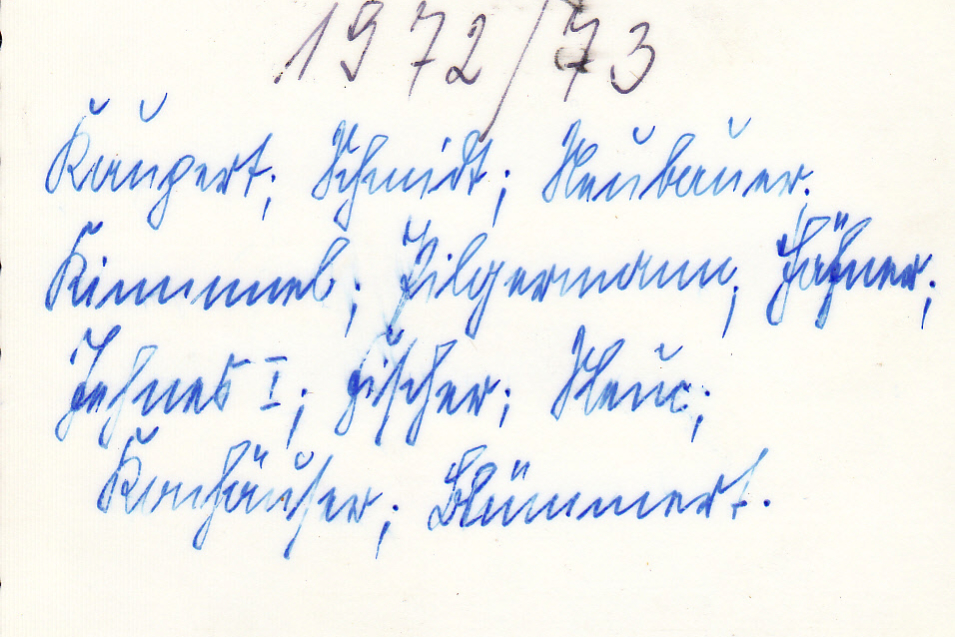 1972/73
Kaupert; Schmidt; Neubauer.
Kimmel; Pilgermann; Hähner;
Jehnes I; Fischer; Neuc;
Kronhäuser; Blümmert.